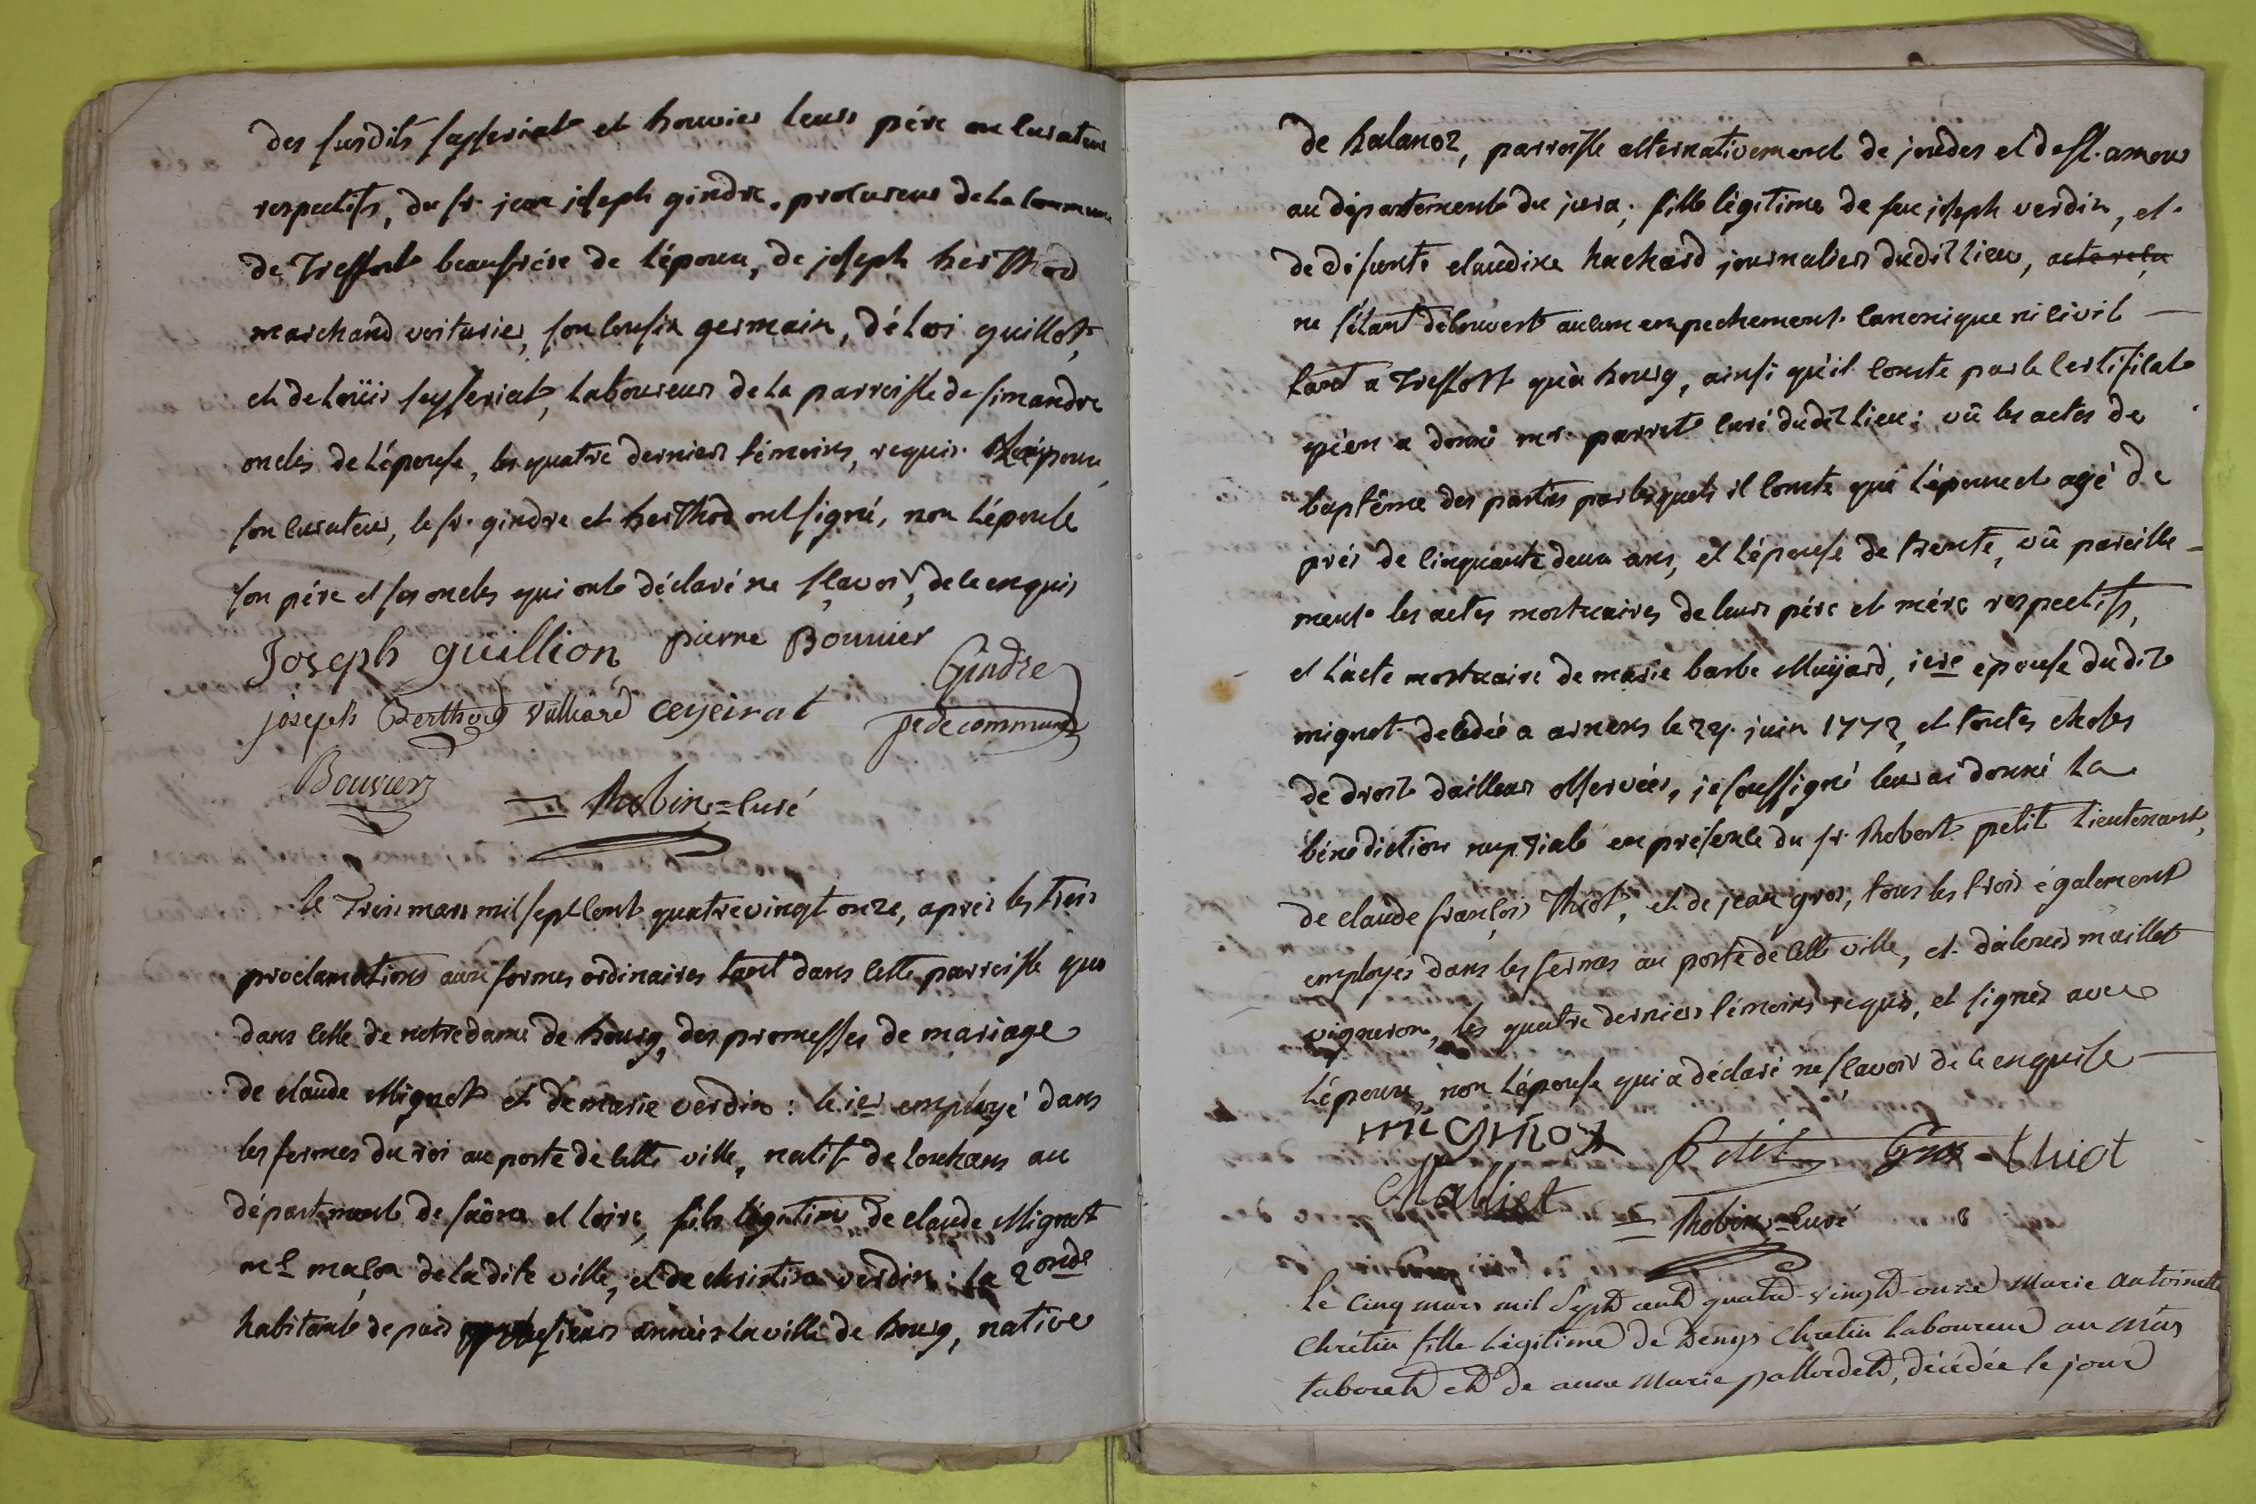 des susdits seyseriat et bouvier leurs pére ou curateur
respectifs, du sr. jean joseph gindre, procureur de la commune
de Treffort beaufrére de l'époux, de joseph berthod
marchand voiturier, son cousin germain, d'éloi guillot,
et de loüis seyseriat, laboureurs de la parroisse de simandre
oncles de l'épouse, les quatre derniers témoins, requis. l'époux,
son curateur, le sr. gindre et berthod ont signé, non l'épouse
son pére et ses oncles qui ont déclaré ne sçavoir, de ce enquis
Joseph guillion pierre Bouvier
Gindre
joseph Berthod vulliard ceyeirat
pr de commune
Bouvier
= Robin = curé
le trois mars mil sept cent quatrevingt onze, aprés les trois
proclamations aux formes ordinaires tant dans cette parroisse que
dans celle de notre dame de bourg, des promesses de mariage
de claude Mignot et de marie verdin : le 1er employé dans
les fermes du roi au poste de cette ville, natif de louhans au
département de saône et loire, fils légitime de claude Mignot
me maçon de la dite ville, et de christine verdin : la 2onde
habitante depuis plusieurs années la ville de bourg, native
de balanoz, parroisse alternativement de joudes et de st. amour
au département du jura, fille légitime de feu joseph verdin, et
de défunte claudine bachard journaliers dudit lieu,
ne s'étant découvert aucun empechement canonique ni civil
tant a Treffort qu'à bourg, ainsi qu'il conste par le certificat
qu'en a donné mr. parret curé dudit lieu : vû les actes de
baptême des parties par lesquels il conste que l'époux est agé de
prés de cinquante deux ans, et l'épouse de trente, vû pareille-
ment les actes mortuaires de leurs pére et mére respectifs,
et l'acte mortuaire de marie barbe Muyard, 1ere épouse dudit
mignot decedée a arnens le 27. juin 1772, et toutes choses
de droit d'ailleurs observées, je soussigné leur ai donné la
bénédiction nuptiale en présence du sr. Robert petit lieutenant,
de claude françois Thiot, et de jean gros, tous les trois également
employés dans les fermes au poste de cette ville, et d'alexis maillet
vigneron, les quatre derniers témoins requis, et signés avec
l'époux, non l'épouse qui a déclaré ne sçavoir de ce enquise
mignot Petit Gros Thiot
Malliet
= Robin = curé
Le cinq mars mil sept cent quatre-vingt-onze Marie antoinette
chrétin fille légitime de Denys chrétin laboureur au mas
taboret et de anne Marie pallordet, décédée le jour